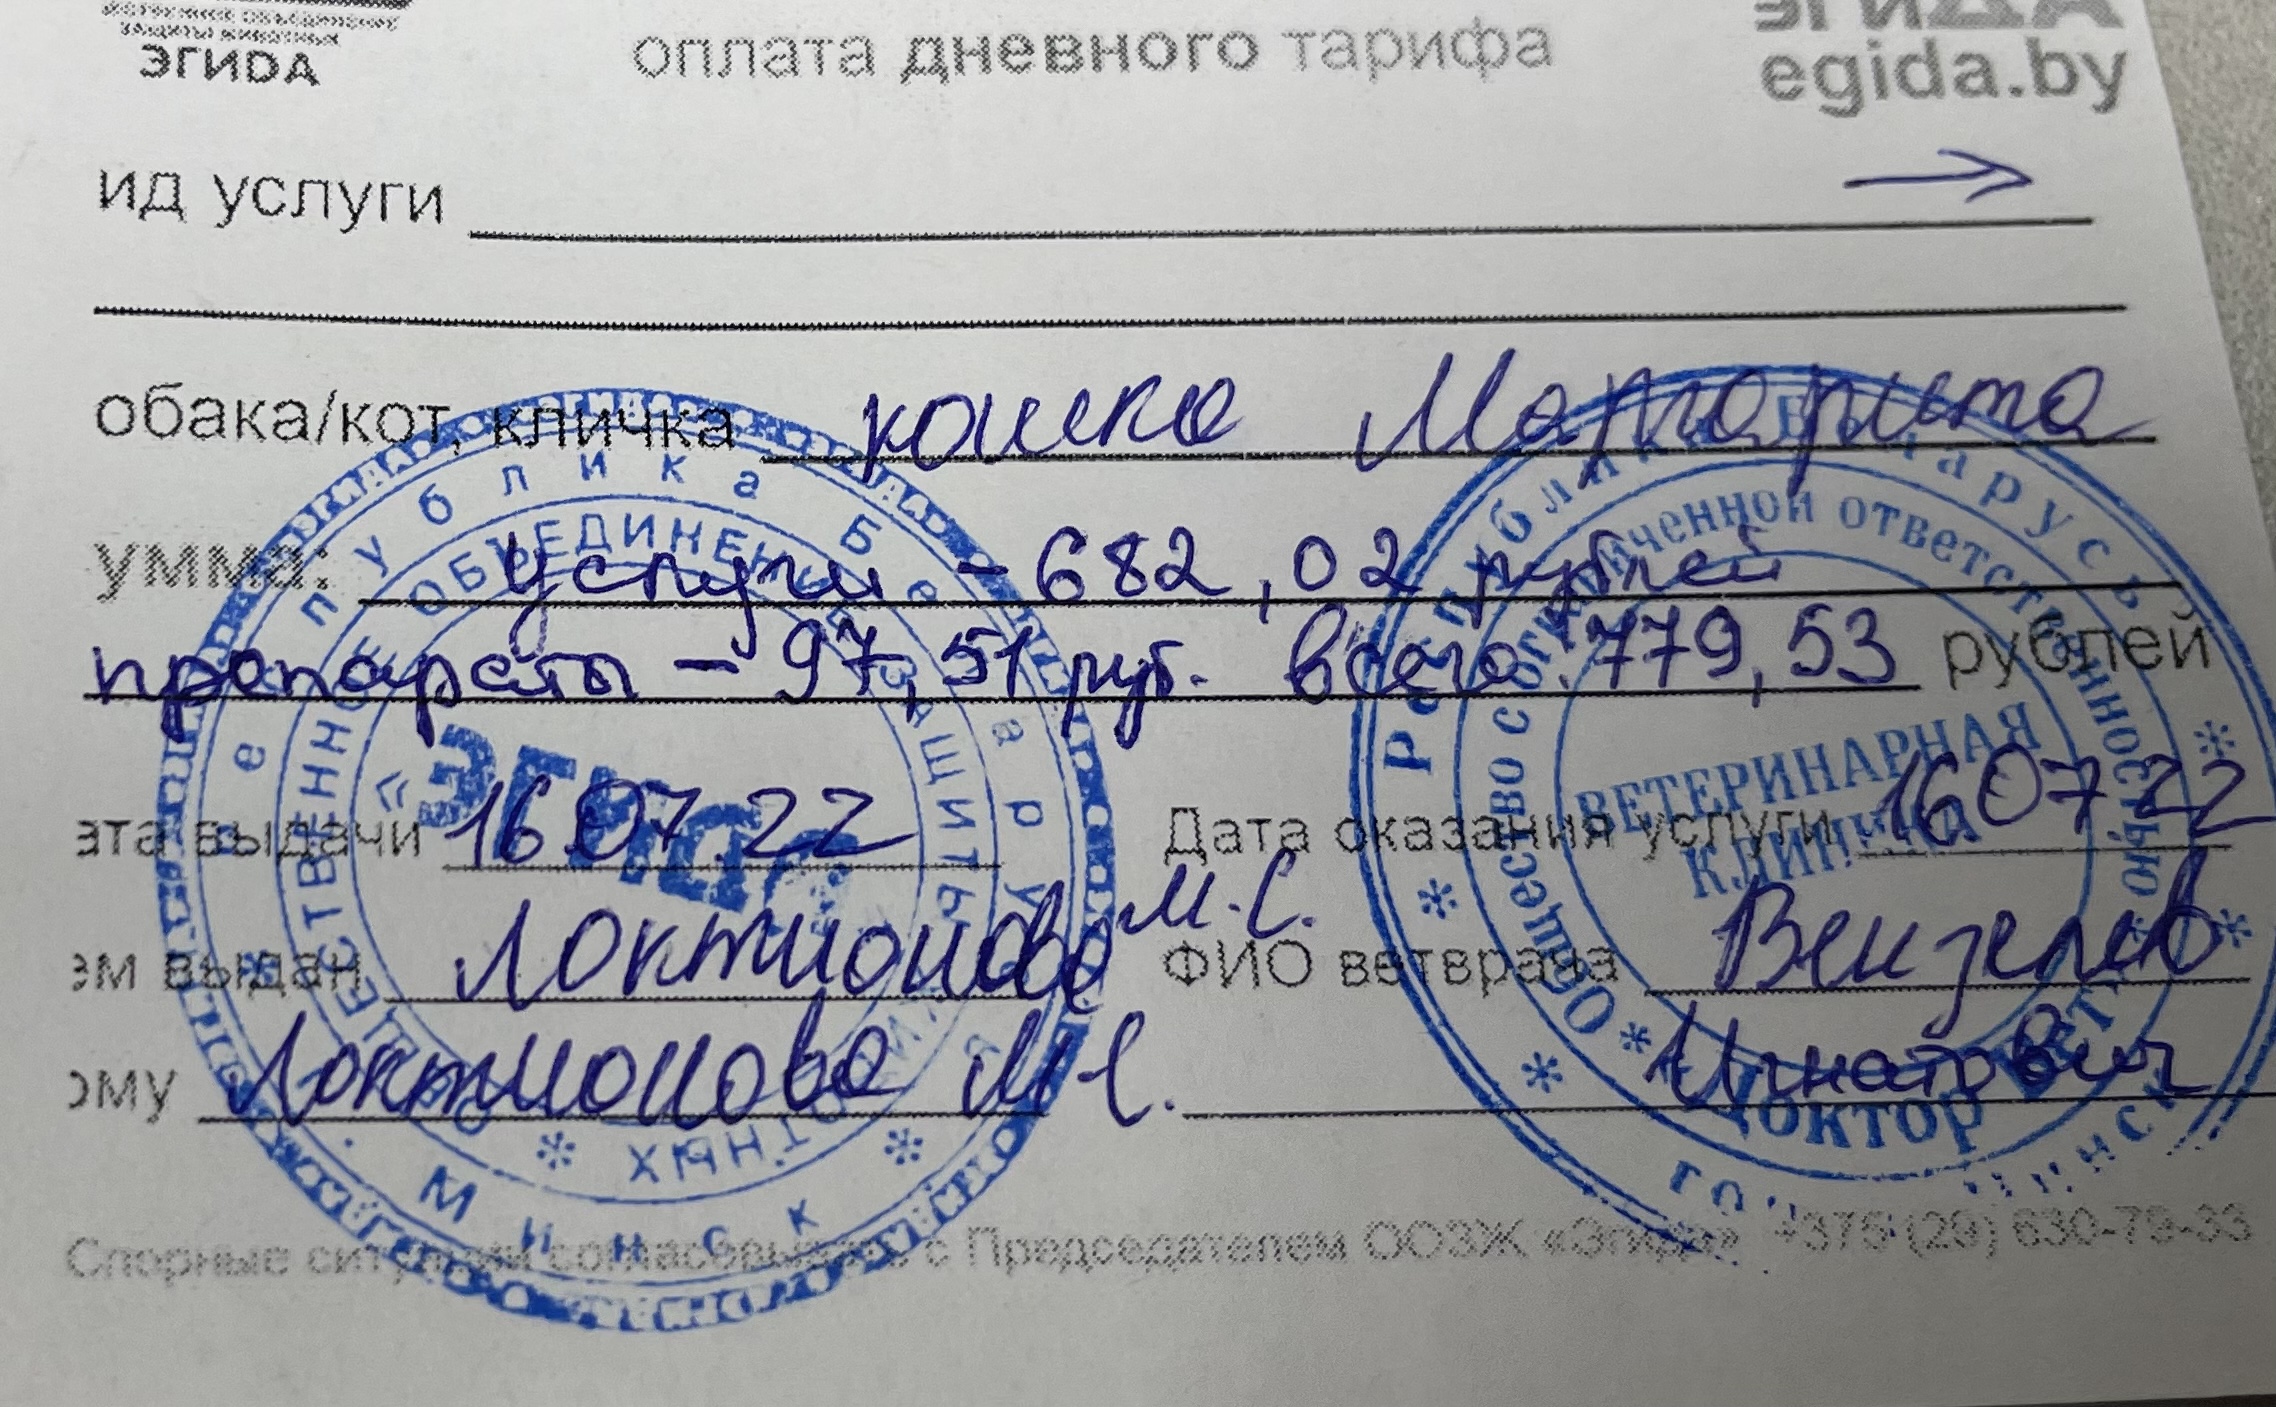 ЗАЩИТЫ ЖИВОТНЫХ
ЭГИDА
оплата дневного тарифа
ЭГИДА
egida.by
ид услуги
обака/кот, кличка кошка Маргарита
умма: Услуги - 682,02 рублей
препараты - 97,51 руб. Всего: 779,53 рублей
ата выдачи 16.07.22 Дата оказания услуги 16.07.22
ем выдан Локтионова М.С. ФИО ветврача Вензелев
ому Локтионова М.С. Игнатович
Спорные ситуации согласовывать с Председателем ООЗЖ «Эгида» +375 (29) 630-79-33
Республика Беларусь
ОБЩЕСТВЕННОЕ ОБЪЕДИНЕНИЕ ЗАЩИТЫ ЖИВОТНЫХ
«ЭГИДА»
г. Минск
Республика Беларусь
Общество с ограниченной ответственностью
ВЕТЕРИНАРНАЯ
КЛИНИКА
Доктор Вет
город Минск